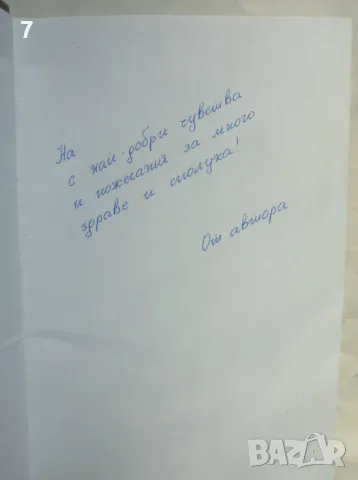 7
На
с най-добри чувства
и пожелания за много
здраве и сполука!
От автора
BAZAR.bg